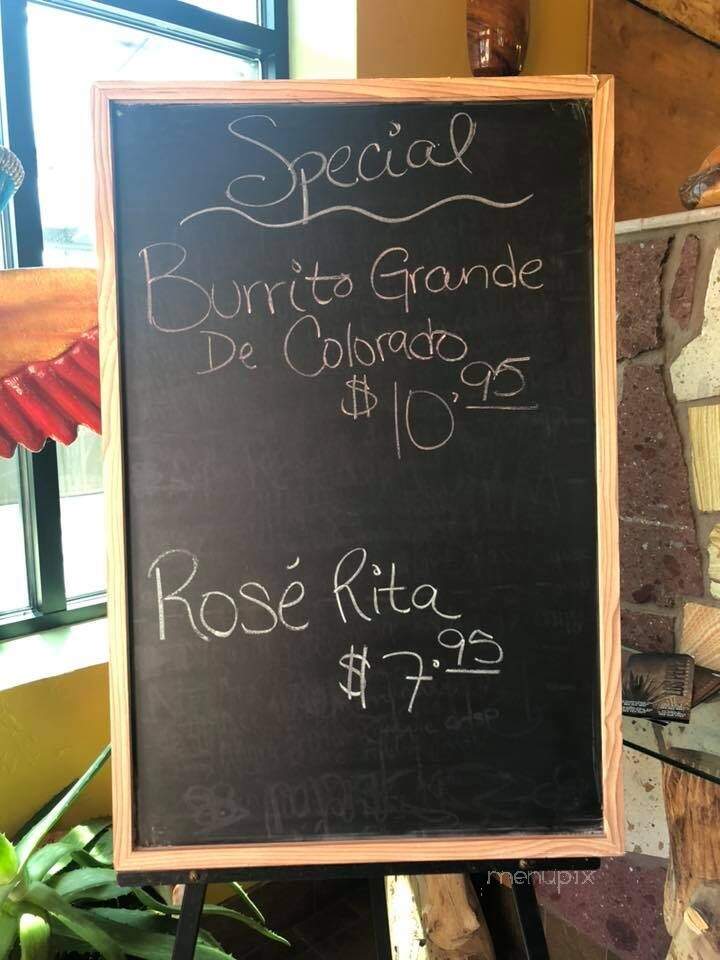 Special
Burrito Grande
De Colorado
$10.95
Rosé Rita
$7.95
menupix